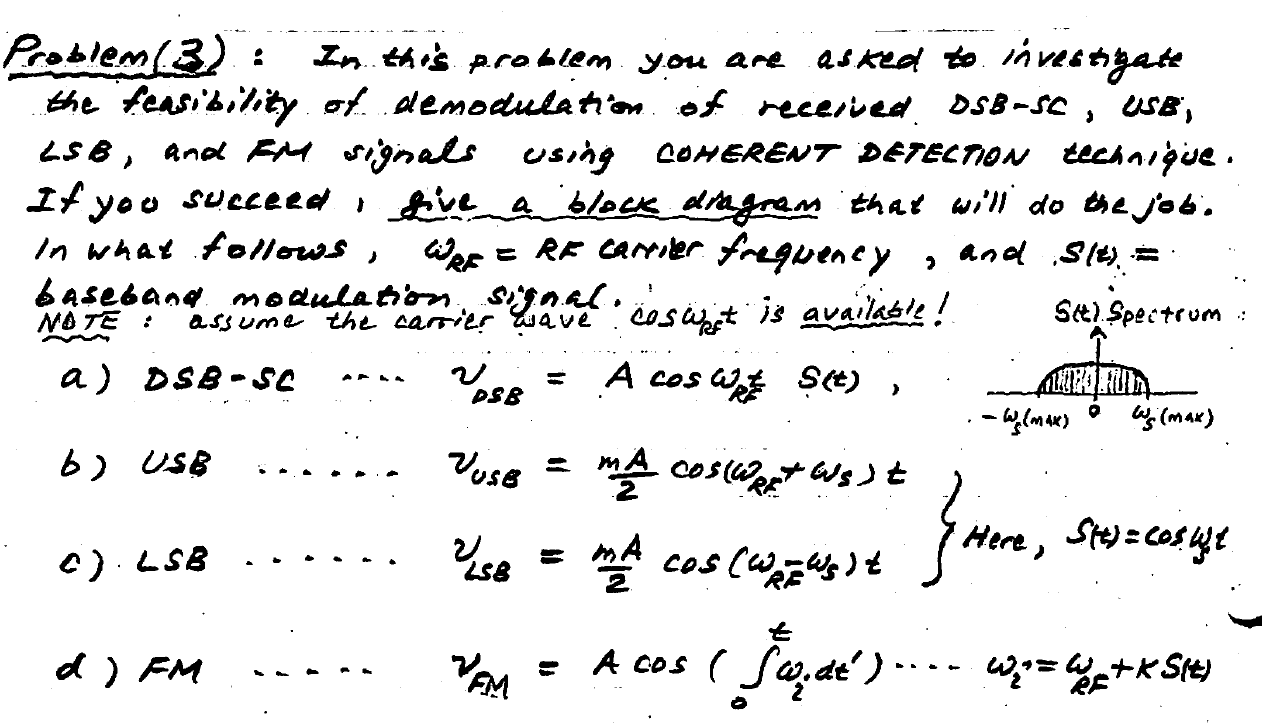 Problem (3) : In this problem you are asked to investigate
the feasibility of demodulation of received DSB-SC, USB,
LSB, and FM signals using COHERENT DETECTION technique.
If you succeed, give a block diagram that will do the job.
In what follows, ω_RF = RF carrier frequency, and S(t) =
baseband modulation signal.
NOTE : assume the carrier wave cos ω_RF t is available!
S(t) Spectrum :
-ω_s(MAX) 0 ω_s(MAX)
a) DSB-SC .... v_DSB = A cos ω_RF t S(t) ,
b) USB ...... v_USB = mA/2 cos(ω_RF + ω_s) t
c) LSB ...... v_LSB = mA/2 cos(ω_RF - ω_s) t
} Here, S(t) = cos ω_s t
d) FM ..... v_FM = A cos ( ∫_0^t ω_i dt' ) .... ω_i = ω_RF + K S(t)